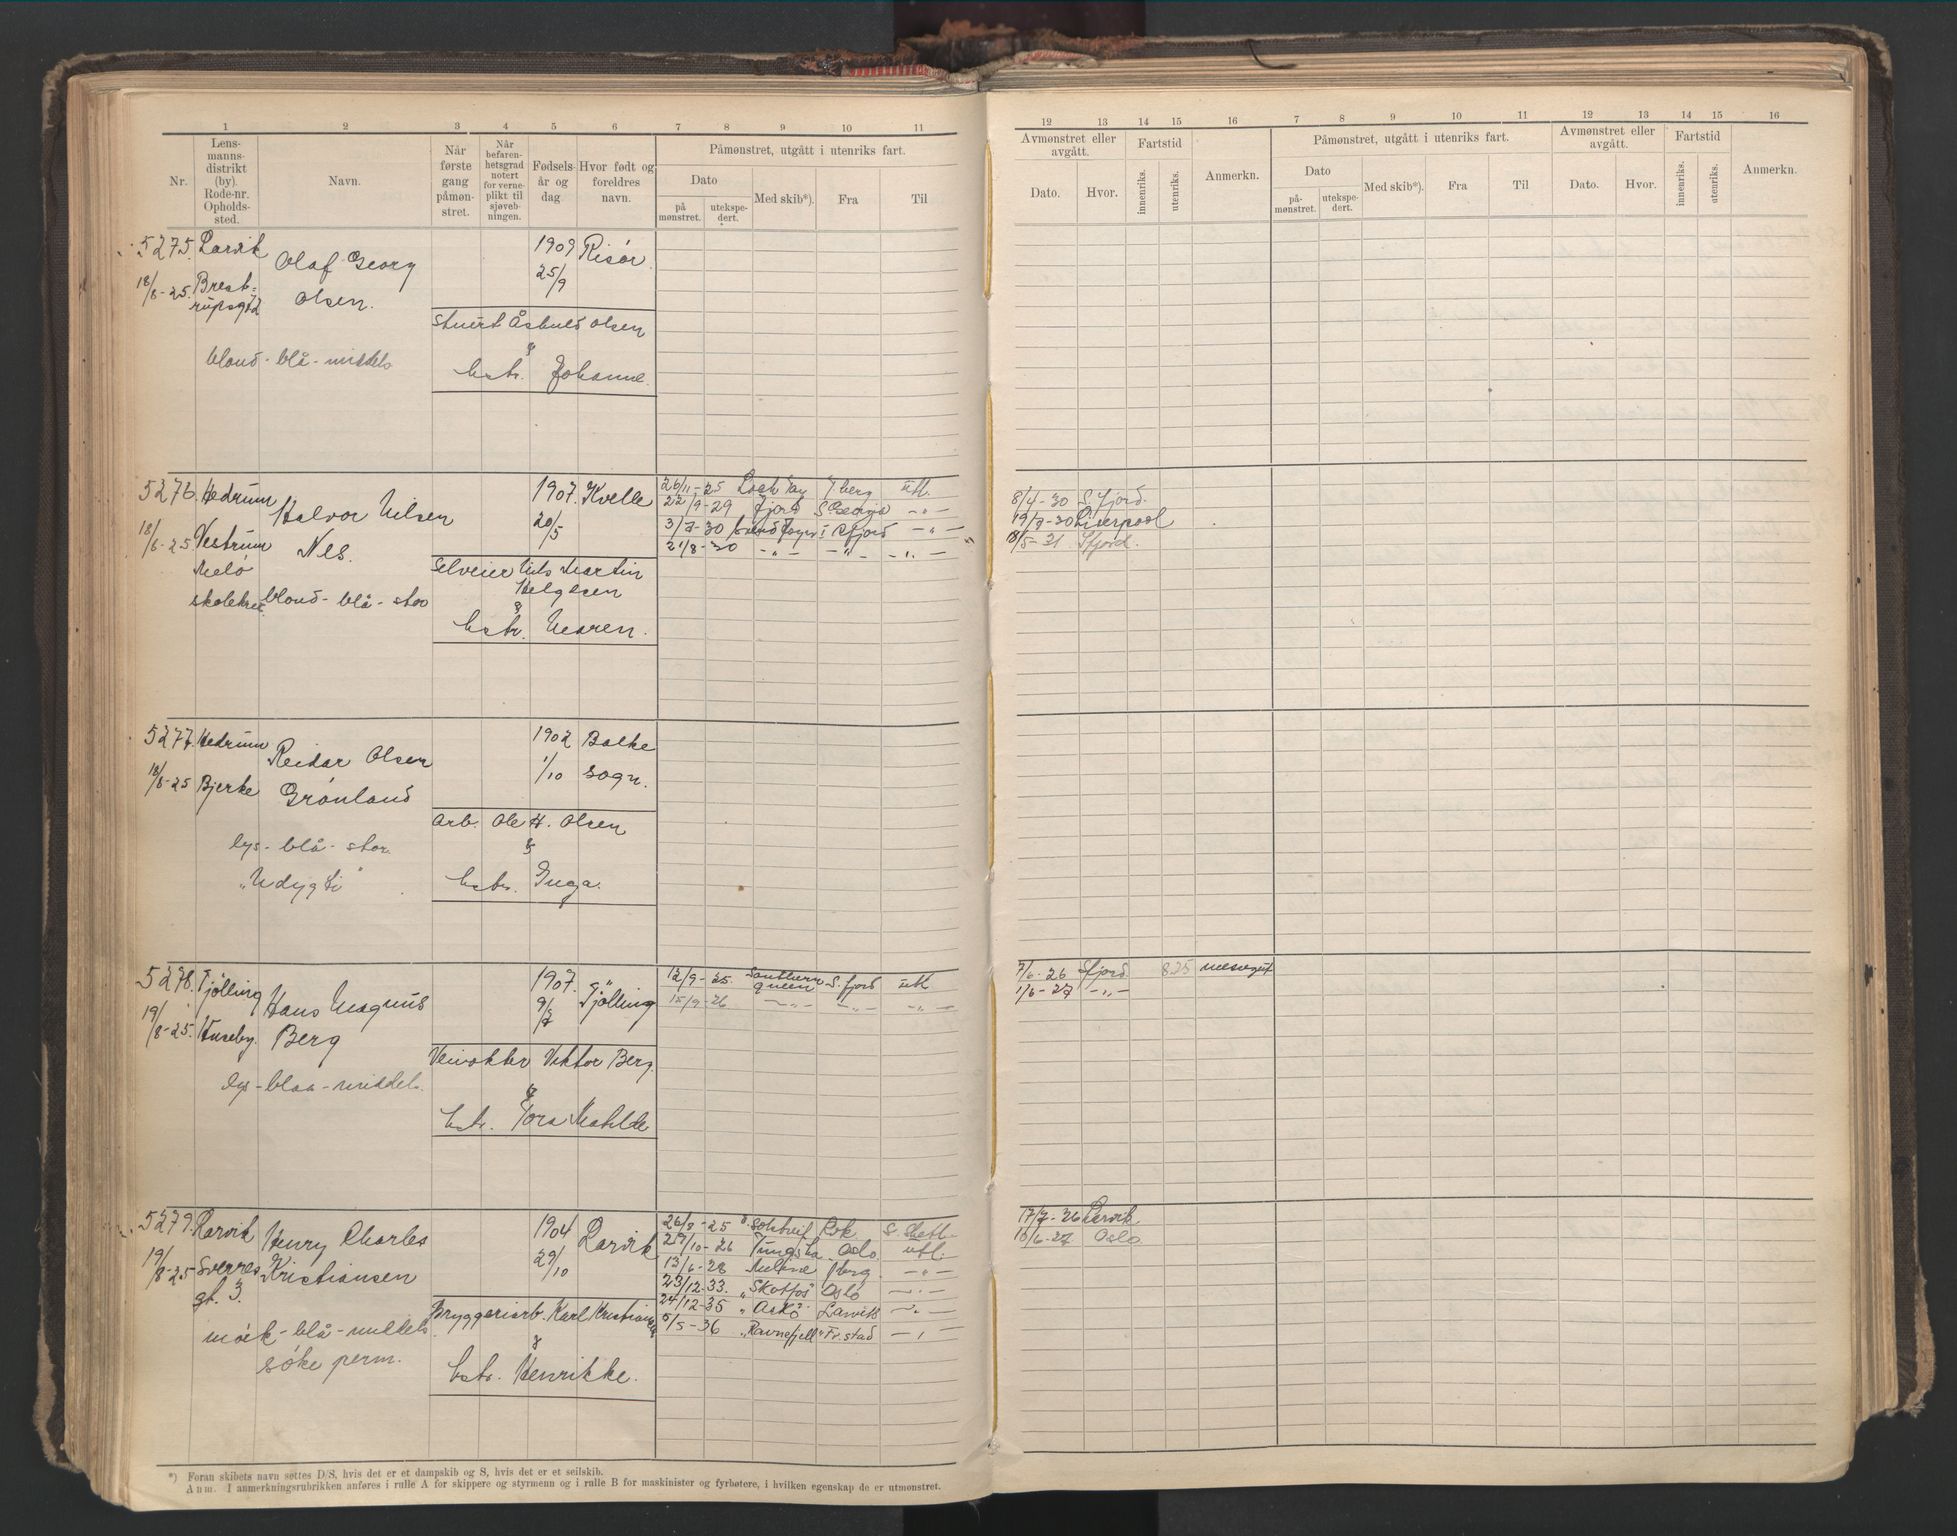 1 2 3 4 5 6 7 8 9 10 11
Nr.
Lens-
manns-
distrikt
(by).
Rode-nr.
Opholds-
sted.
Navn.
Når
første
gang
påmøn-
stret.
Når
befaren-
hetsgrad
notert
for verne-
plikt til
sjøveb-
ningen.
Fødsels-
år og
dag
Hvor født og
foreldres
navn.
Påmønstret, utgått i utenriks fart.
Dato
på
mønstret.
utekspe-
dert.
Med skib*).
Fra
Til
12 13 14 15 16 7 8 9 10 11 12 13 14 15 16
Avmønstret eller
avgått.
Dato.
Hvor.
Fartstid
innenriks.
utenriks.
Anmerkn.
Påmønstret, utgått i utenriks fart.
Dato
på-
mønstret.
utekspe-
dert.
Med skib*).
Fra
Til
Avmønstret eller
avgått.
Dato.
Hvor.
Fartstid
innenriks.
utenriks.
Anmerkn.
5275. Larvik Olaf Georg 1909 Risør
18/8-25. Brest- Olsen. 25/9
rupsgt
stuert Olsen
&
blond - blå - middels
hstr. Johanne.
5276. Hedrum Halvor Nilsen 1907. Kvelle
18/8-25. Vestrum Nes. 20/5
Melø
skolekre blond - blå - stor
Selveier Nils Martin
Helgesen
&
hstr. Maren.
26/11-25 Loch Tay T.berg utl.
22/9-29 Fjord S. Georgia -"-
3/7-30 S.fjord -"-
21/8-30 -"- -"- -"-
8/4-30 S.fjord.
19/7-30 Liverpool
18/5-31 Sfjord.
5277. Hedrum Reidar Olsen 1902 Bakke
18/8-25 Bjerke Grønland 1/10 sogn.
Arb. Ole H. Olsen
&
lys - blå - stor.
"Udygti"
hstr. Inga.
5278. Tjølling Hans Magnus 1907. Tjølling
19/8-25. Huseby. Berg 9/7
Veivokter Viktor Berg.
&
lys - blaa - middels.
hstr. Tora Matilde
12/9-25. Southern queen S.fjord utl
15/9-26 -"- -"- -"-
7/6-26 Sfjord 8.25 messegut
1/6-27 -"-
5279. Larvik Henry Charles 1904 Larvik
19/8-25 Sverres Kristiansen 29/10
gt. 3.
Bryggeriarb. Karl Kristiansen
&
mørk - blå - middels
søke perm.
hstr. Henrikke.
26/8-25 Solstreif S. Shetl.
29/10-26 Tungsha Oslo. utl.
13/6-28 T.berg. -"-
23/12.33. "Skotfos" Oslo -"-
24/12-35 "Askø" Larvik -"-
5/5-36 "Ravnefjell" Fr.stad -"-
17/7-26 Larvik
10/6-27 Oslo
*) Foran skibets navn settes D/S, hvis det er et dampskib og S, hvis det er et seilskib.
Anm. I anmerkningsrubrikken anføres i rulle A for skippere og styrmenn og i rulle B for maskinister og fyrbøtere, i hvilken egenskap de er utmønstret.